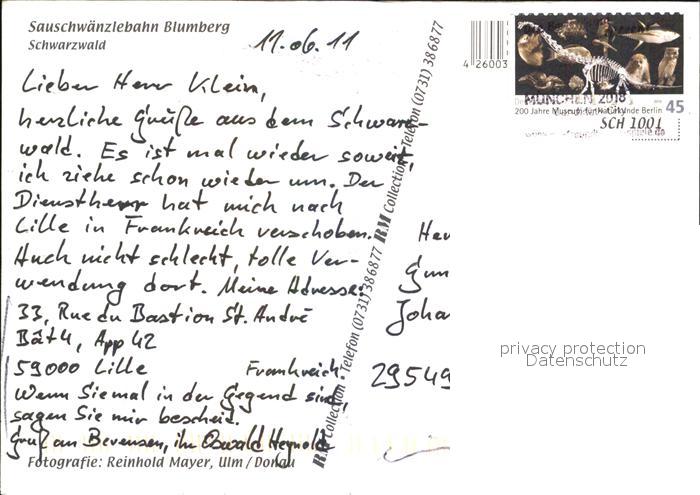 Sauschwänzlebahn Blumberg
Schwarzwald
11.06.11
Lieber Herr Klein,
herzliche Grüße aus dem Schwarz-
wald. Es ist mal wieder soweit,
ich ziehe schon wieder um. Der
Dienstherr hat mich nach
Lille in Frankreich verschoben.
Auch nicht schlecht, tolle Ver-
wendung dort. Meine Adresse:
33, Rue du Bastion St. André
Bât 4, App 42
59000 Lille Frankreich.
Wenn Sie mal in der Gegend sind,
sagen Sie mir bescheid.
Gruß an Bevensen, ihr Oswald
Fotografie: Reinhold Mayer, Ulm/Donau
RM Collection · Telefon (0731) 386877
RM Collection · Telefon (0731) 386877
4 26003
45
200 Jahre Museum für Naturkunde Berlin
MÜNCHEN 2018
SCH 1001
Her
Gun
Joha
29549
privacy protection
Datenschutz